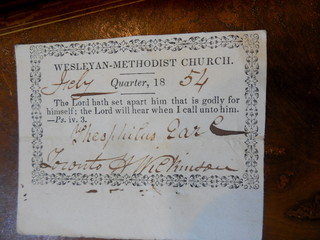 WESLEYAN-METHODIST CHURCH.
July Quarter, 1854
The Lord hath set apart him that is godly for
himself; the Lord will hear when I call unto him.
—Ps. iv. 3.
Theophilus Earl
H Wilkinson